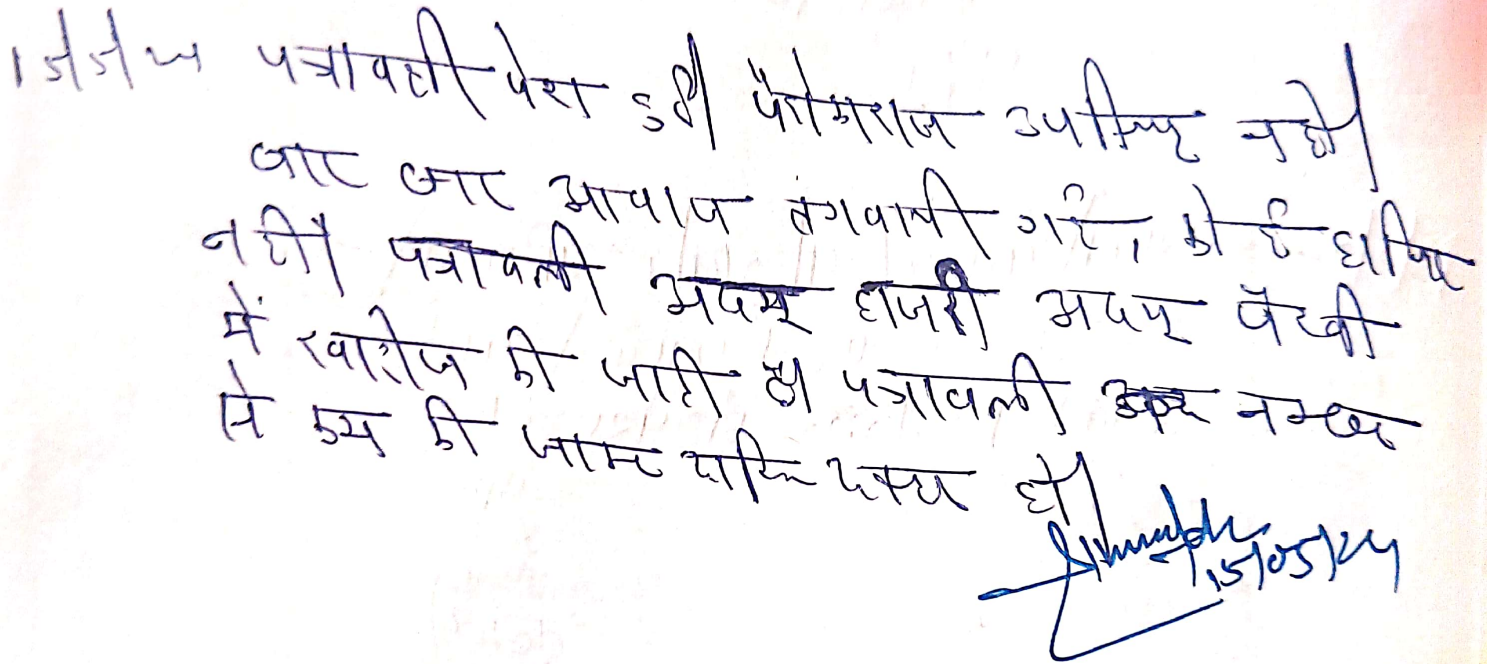 15/5/24 पत्रावली पेश हुई। पैरोकारान उपस्थित नहीं।
बार बार आवाज लगवायी गई, कोई हाजिर
नहीं। पत्रावली अदम हाजरी अदम पैरवी
में खारीज की जाती है। पत्रावली नम्बर
से कम की जाकर दाखिल दफ्तर हो।
15/05/24